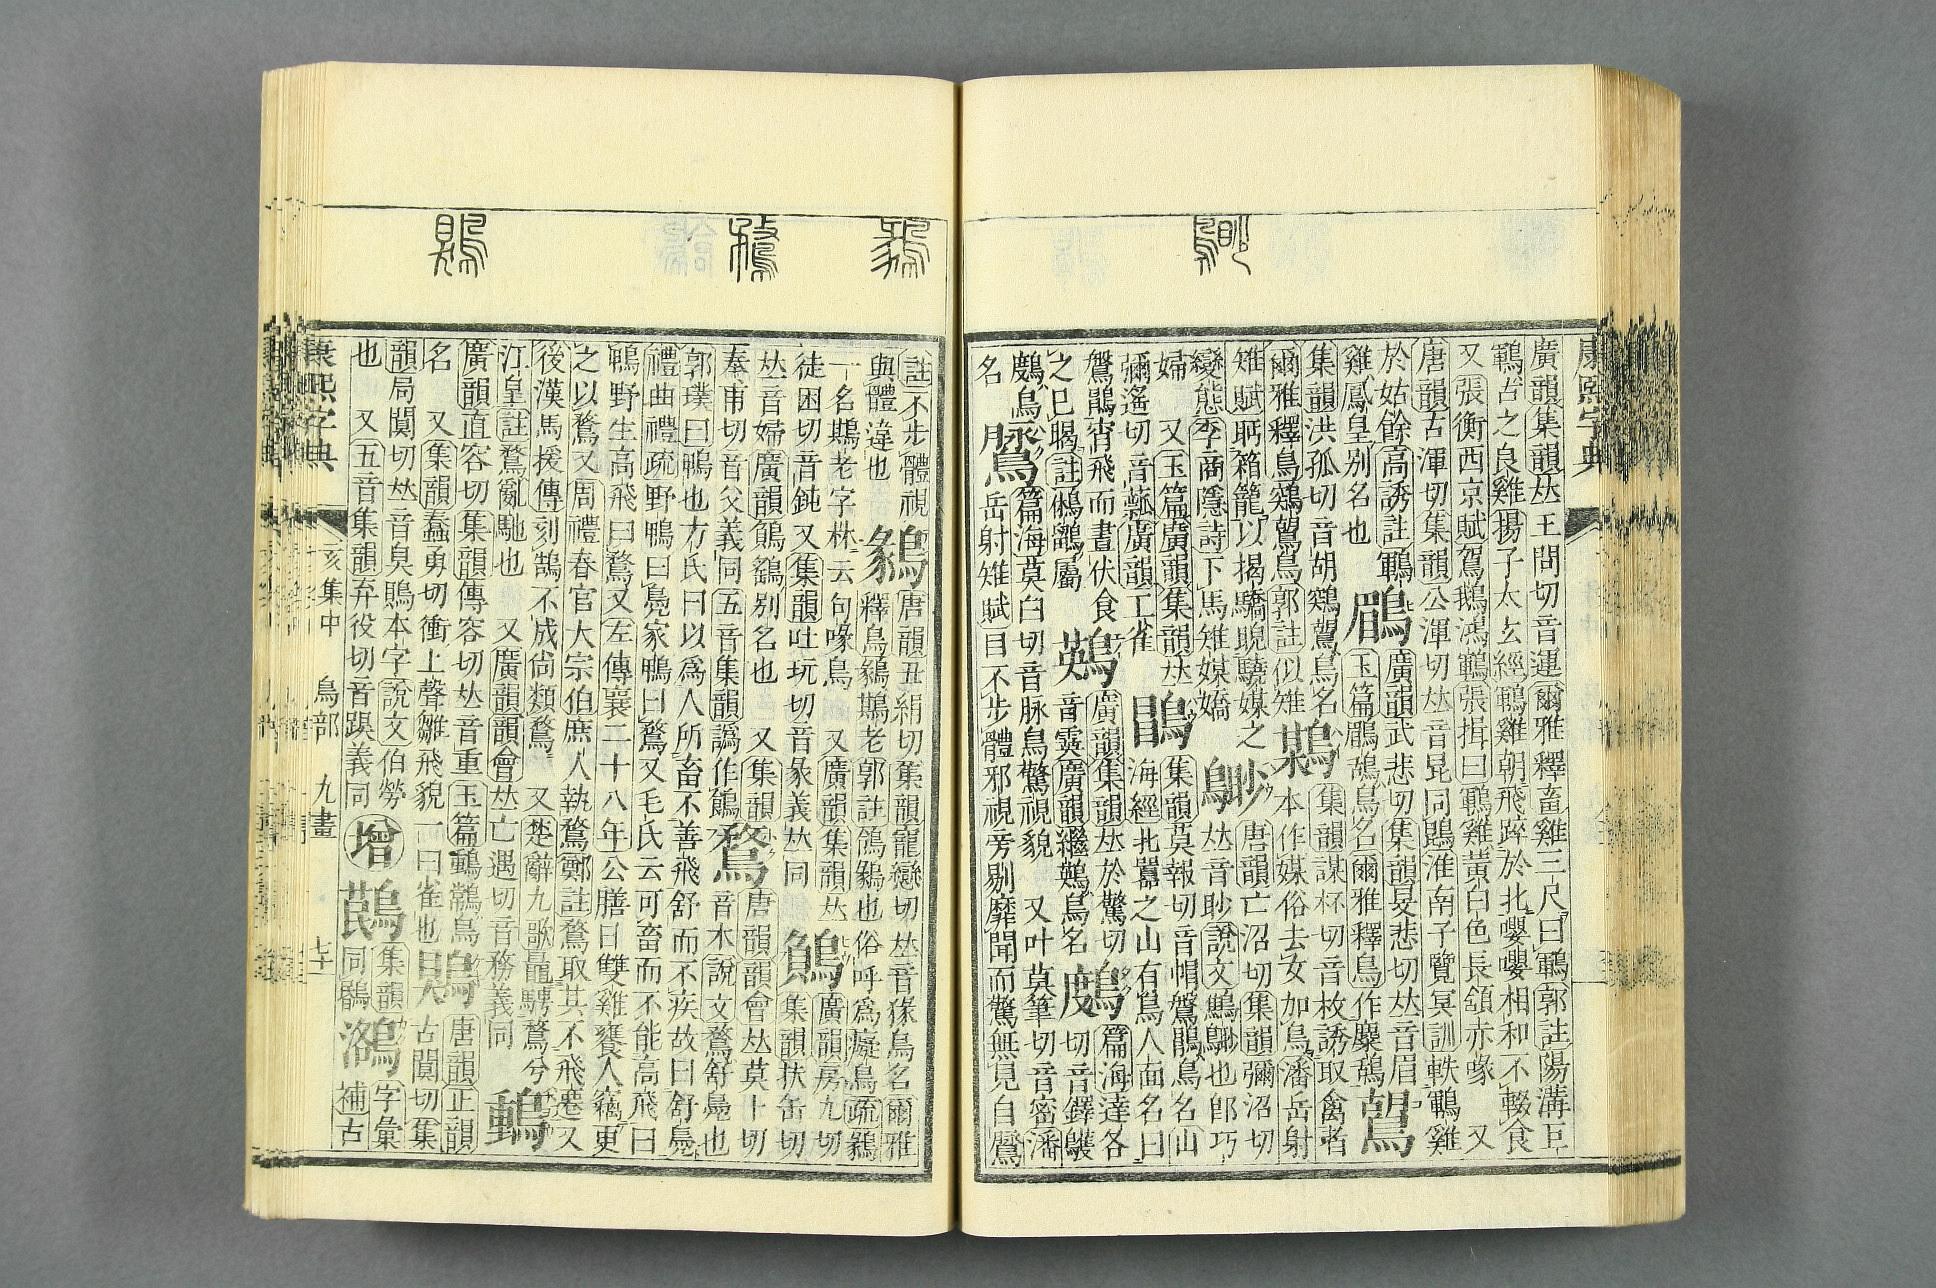 康熙字典
廣韻集韻𠀤王問切音運爾雅釋畜雞三尺曰鶤郭註陽溝巨
鶤古之良雞揚子太玄經鶤雞朝飛踤於北嚶嚶相和不輟食
又張衡西京賦駕鵝鴻鶤張揖曰鶤雞黃白色長頷赤喙 又
唐韻古渾切集韻公渾切𠀤音昆同鵾淮南子覽冥訓軼鶤雞
於姑餘高誘註鶤
雞鳳皇別名也
鶥廣韻武悲切集韻旻悲切𠀤音眉
玉篇鶥鴰鳥名爾雅釋鳥作麋鴰
鶦
集韻洪孤切音胡鶏鶦鳥名
爾雅釋鳥鶏鶦鳥郭註似雉
集韻謀杯切音枚誘取禽者
本作媒俗去女加鳥潘岳射
雉賦眄箱籠以揭驕睨驍媒之
變態李商隱詩下馬雉媒嬌
唐韻亡沼切集韻彌沼切
𠀤音眇說文鷦䳂也郎巧
婦 又玉篇廣韻集韻𠀤
彌遙切音瓢廣韻工雀
䳰
集韻莫報切音帽鴛䳰鳥名山
海經北嚻之山有鳥人面名曰
鴛䳰宵飛而晝伏食
之已暍註鵂鶹屬
鶧
廣韻集韻𠀤於驚切
音霙廣韻繼鶧鳥名
篇海達各
切音鐸
鳥
篇海莫白切音脉鳥驚視貌 又叶莫筆切音密潘
名
岳射雉賦目不步體邪視旁剔靡聞而驚無見自鷕
註不步體視
與體違也
鶨
唐韻丑絹切集韻寵戀切𠀤音猭鳥名爾雅
釋鳥鶨鶀老郭註鴿鶨也俗呼爲癡鳥疏鶨
一名鶀老字林云句喙鳥 又廣韻集韻𠀤
徒困切音鈍又集韻吐玩切音彖義𠀤同
䳕
廣韻房九切
集韻扶缶切
𠀤音婦廣韻䳕鶔別名也 又集韻
奉甫切音父義同五音集韻譌作鵤
鶩
唐韻韻會𠀤莫卜切
音木說文鶩舒鳧也
郭璞曰鴨也方氏曰以爲人所畜不善飛舒而不疾故曰舒鳧
禮曲禮疏野鴨曰鳧家鴨曰鶩又毛氏云可畜而不能高飛曰
鴨野生高飛曰鶩又左傳襄二十八年公膳日雙雞饔人竊更
之以鶩又周禮春官大宗伯庶人執鶩鄭註鶩取其不飛遷又
後漢馬援傳刻鵠不成尙類鶩 又楚辭九歌鼂騁鶩兮
江皇註鶩亂馳也 又廣韻韻會𠀤亡遇切音務義同
廣韻直容切集韻傳容切𠀤音重玉篇䳯鶶鳥
名 又集韻蠢勇切衝上聲雛飛貌一曰雀也
鶪
唐韻正韻
古闃切集
韻局闃切𠀤音臭鵙本字說文伯勞
也 又五音集韻弃役切音躩義同
增
集韻
同鶻
字彙
補古
康熙字典
亥集中 鳥部 九畫
七十一